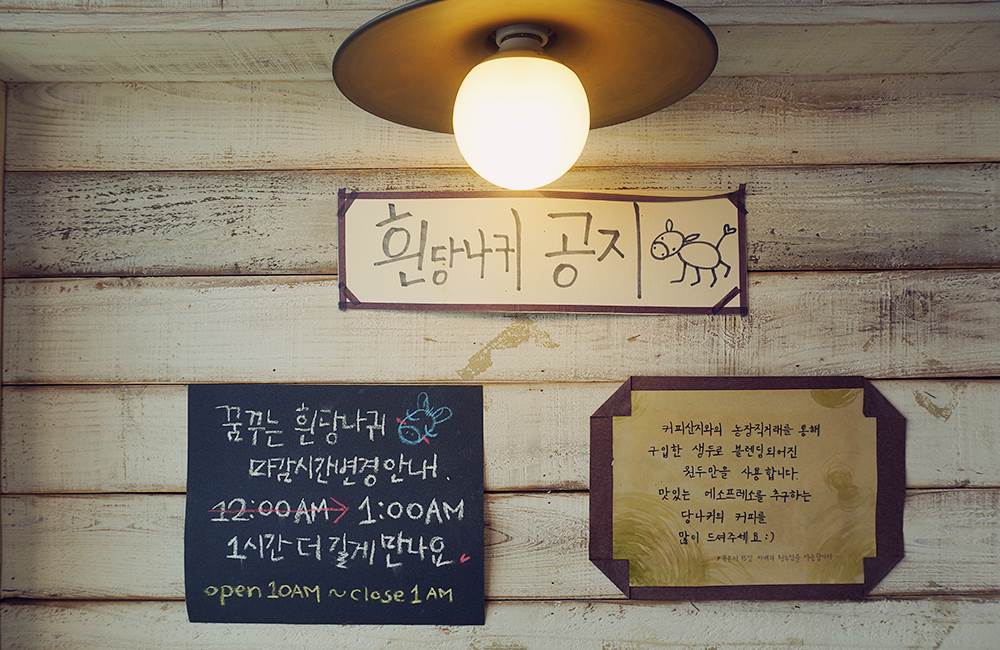 흰당나귀 공지
꿈꾸는 흰당나귀
마감시간변경안내!
12:00AM → 1:00AM
1시간 더 길게 만나요
open 10AM ~ close 1AM
커피산지와의 농장직거래를 통해
구입한 생두로 블렌딩되어진
원두만을 사용합니다.
맛있는 에소프레소를 추구하는
당나귀의 커피를
많이 드셔주세요 :)